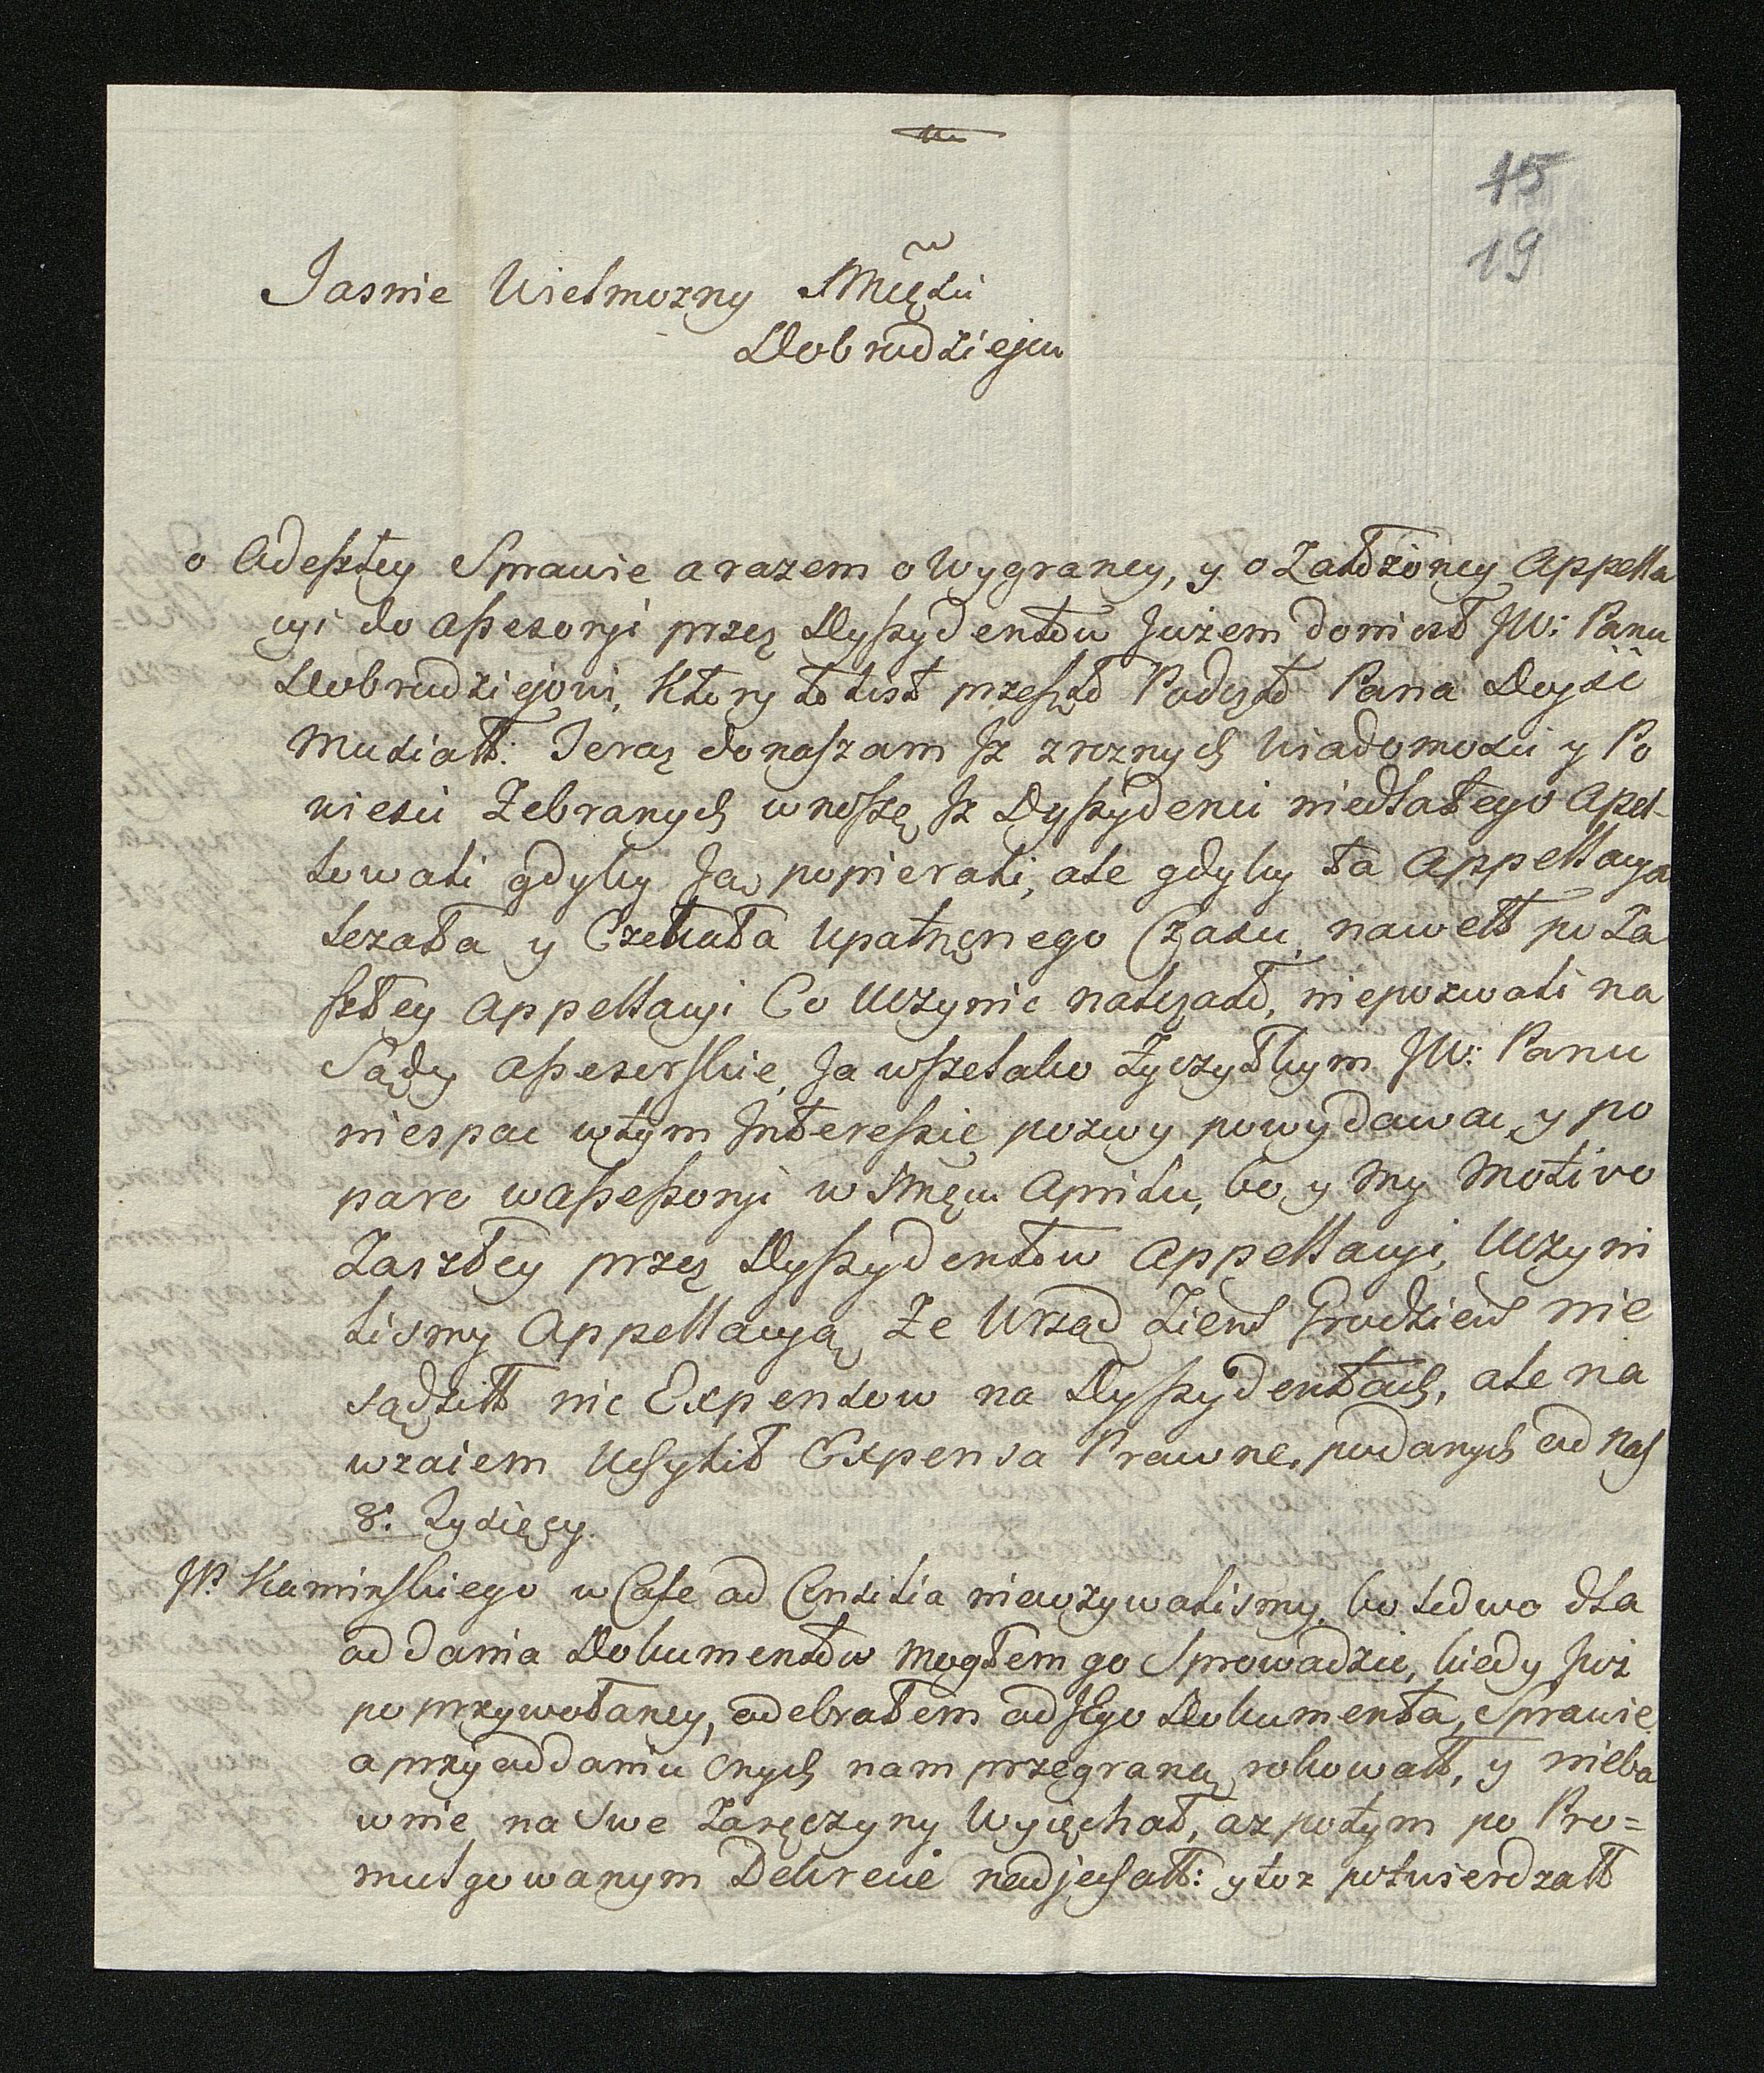 15
19
Jasnie Wielmozny Mućki
Dobrodzieju
o Adeszłey Sprawie a razem o wygraney, y o Załoźoney Appella
cyi do Assesoryi przez Dyssydentow Jużem doniosł JW: Panu
Dobrodziejowi, Ktory to list przeszło Pocztą Pana Doyść
musiałł: Teraz donaszam Jż zroznych Wiadomosci y Po
wiesci Zebranych wnoszę Jż Dyssydenci niedlatego Apel-
lowali gdyby Ją popierali, ale gdyby ta Appellacya
lezała y Czekała Upatrzonego Czasu, nawett po Za
szłey Appellacyi Co Uczynic nalezało, niepozwali na
Sądy Assesorskie, Ja wszelako Zyczyłbym JW: Panu
niespac wtym Jnteressie pozwy powydawac, y po
parc wassessoryi w Mcu Aprilu, bo y my Motivo
Zaszłey przez Dyssydentow Appellacyi, Uczyni
lismy Appellacyą Ze Urząd Ziem Grodzien nie
sądziłł nic Expensow na Dyssydentach, ale na
wzaiem Uchylił Expensa Prawne, podanych od nas
8. Tysięcy.
JP. Kaminskiego w Case ad Consilia niewzywalismy, bo ledwo dla
oddania Dokumentow mogłem go Sprowadzic, kiedy Juz
po przywołaney, odebrałem od JEgo Dokumenta, Sprawie
a przy oddaniu Onych nam przegraną rokowałł, y nieba
wnie na Swe Zaręczyny Wyjechał, az potym po Pro=
mulgowanym Dekrecie nadjechałł: y toz potwierdzałł